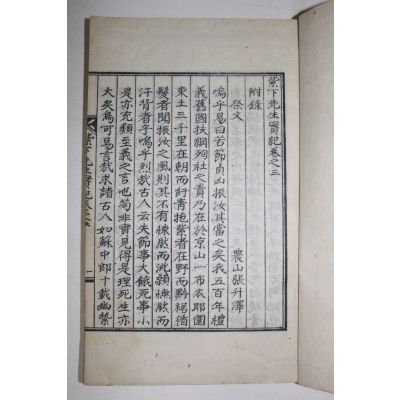 紫下先生實記卷之三
附錄
祭文
農山張升澤
嗚乎易曰苦節貞凶振汝其當之矣我五百年禮
義舊國扶綱殉社之責乃在於京山一布衣耶環
東土三千里在朝而紆靑抱紫者在野而黔裙循
髮者聞振汝之風則其不有悚然而泚顙憮然而
汗背者乎嗚乎烈哉古人云失節事大餓死事小
是亦充類至義之言也苟非實見得是理死生亦
大矣焉可易言哉求諸古人如蘇中郎十載幽縶
紫下先生實記卷之三
一